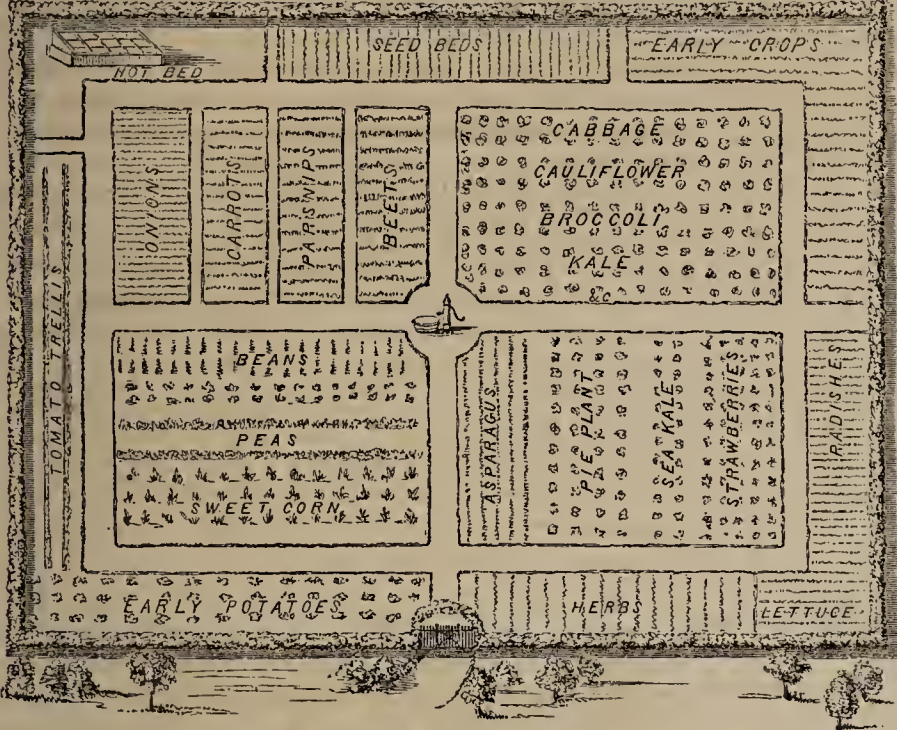 SEED BEDS
EARLY CROPS
HOT BED
ONIONS
CARROTS
PARSNIP
BEETS
CABBAGE
CAULIFLOWER
BROCCOLI
KALE
&C
TOMATO TRELLIS
BEANS
PEAS
SWEET CORN
ASPARAGUS
PIE PLANT
SEA KALE
STRAWBERRIES
RADISHES
EARLY POTATOES
HERBS
LETTUCE